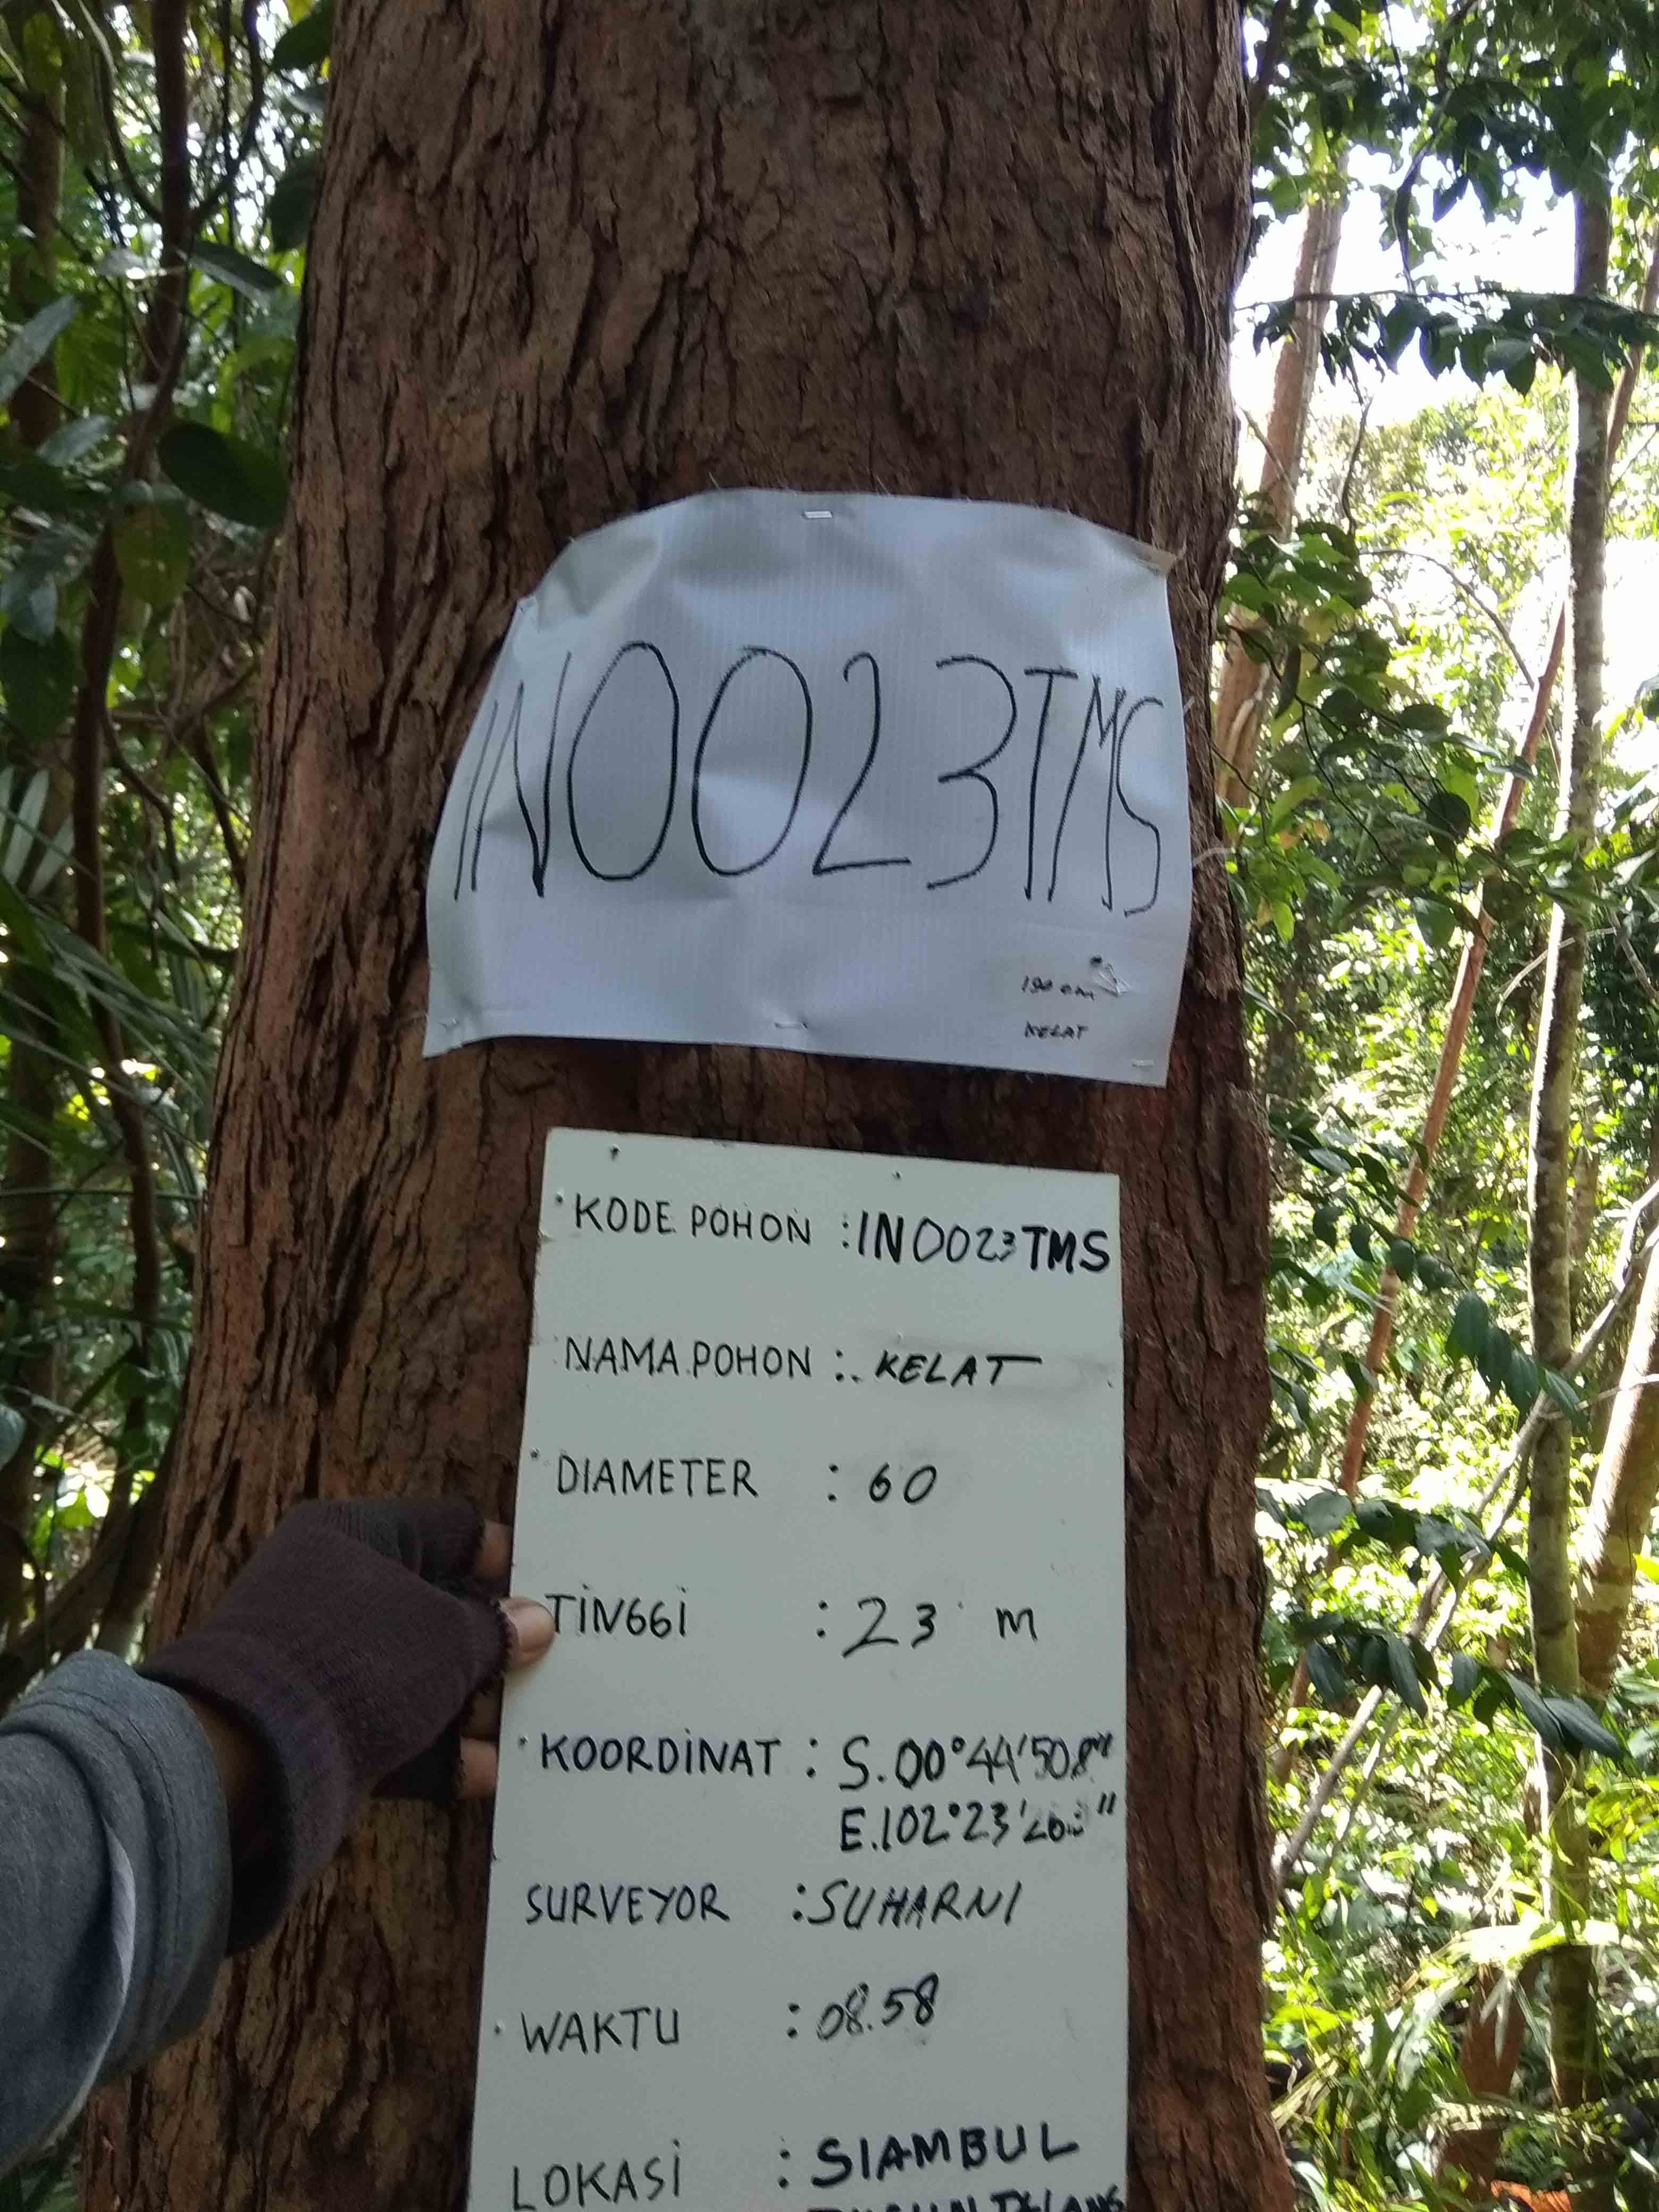 IN0023TMS
190 cm
KELAT
KODE POHON : IN0023TMS
NAMA POHON : KELAT
DIAMETER : 60
TINGGI : 23 m
KOORDINAT : S.00°44'50.8"
E.102°23'
SURVEYOR : SUHARNI
WAKTU : 08.58
LOKASI : SIAMBUL